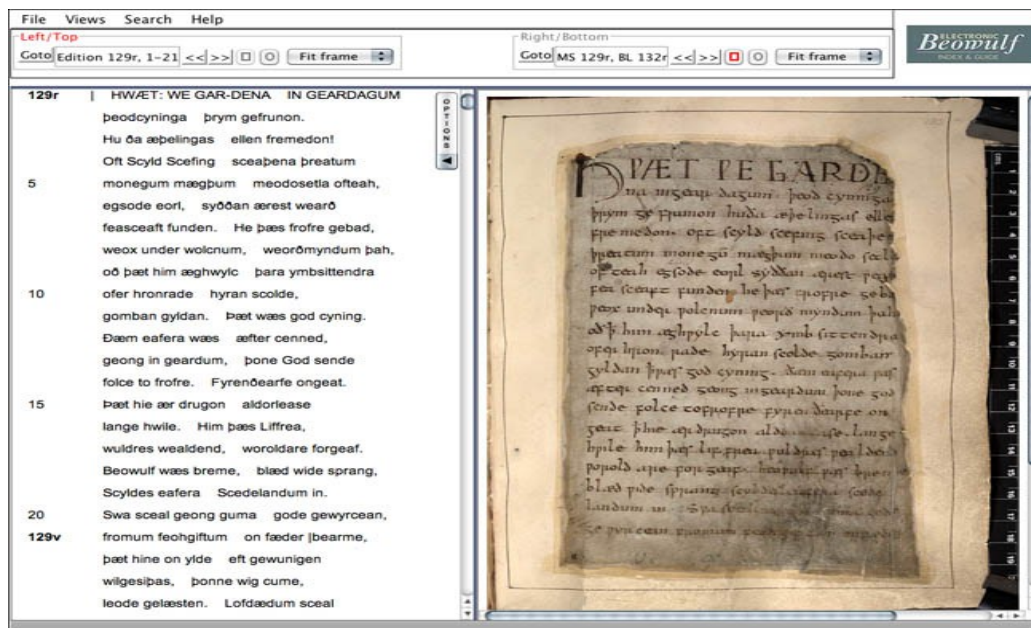 File Views Search Help
Left/Top
Goto Edition 129r, 1-21 << >> Fit frame
Right/Bottom
Goto MS 129r, BL 132r << >> Fit frame
ELECTRONIC
Beowulf
INDEX & GUIDE
OPTIONS
129r | HWÆT: WE GAR-DENA IN GEARDAGUM
þeodcyninga þrym gefrunon.
Hu ða æþelingas ellen fremedon!
Oft Scyld Scefing sceaþena þreatum
5 monegum mægþum meodosetla ofteah,
egsode eorl, syððan ærest wearð
feasceaft funden. He þæs frofre gebad,
weox under wolcnum, weorðmyndum þah,
oð þæt him æghwylc þara ymbsittendra
10 ofer hronrade hyran scolde,
gomban gyldan. Þæt wæs god cyning.
Ðæm eafera wæs æfter cenned,
geong in geardum, þone God sende
folce to frofre. Fyrenðearfe ongeat.
15 Þæt hie ær drugon aldorlease
lange hwile. Him þæs Liffrea,
wuldres wealdend, woroldare forgeaf.
Beowulf wæs breme, blæd wide sprang,
Scyldes eafera Scedelandum in.
20 Swa sceal geong guma gode gewyrcean,
129v fromum feohgiftum on fæder |bearme,
þæt hine on ylde eft gewunigen
wilgesiþas, þonne wig cume,
leode gelæsten. Lofdædum sceal
HǷÆT ǷE GARDE
na ingear dagum. þeod cyninga
þrym ge frunon huða æþelingas elle
fremedon. oft scyld scefing sceaþe
þreatum monegū mægþum meodo setl
ofteah egsode eorl syððan ærest
fea sceaft funden he þæs frofre geba
ƿeox under ƿolcnum ƿeorð myndum þah
oð þ him æghƿylc þara ymb sittendra
ofer hron rade hyran scolde gomban
gyldan þ ƿæs god cyning. ðæm eafera ƿæs
æfter cenned geong ingeardum þone god
sende folce tofrofre fyren ðearfe on
geat þ hie ær drugon lange
hƿile him þæs lif frea ƿuldres ƿealdend
ƿorold are for geaf. ƿæs breme
blæd ƿide sprang
landum in.